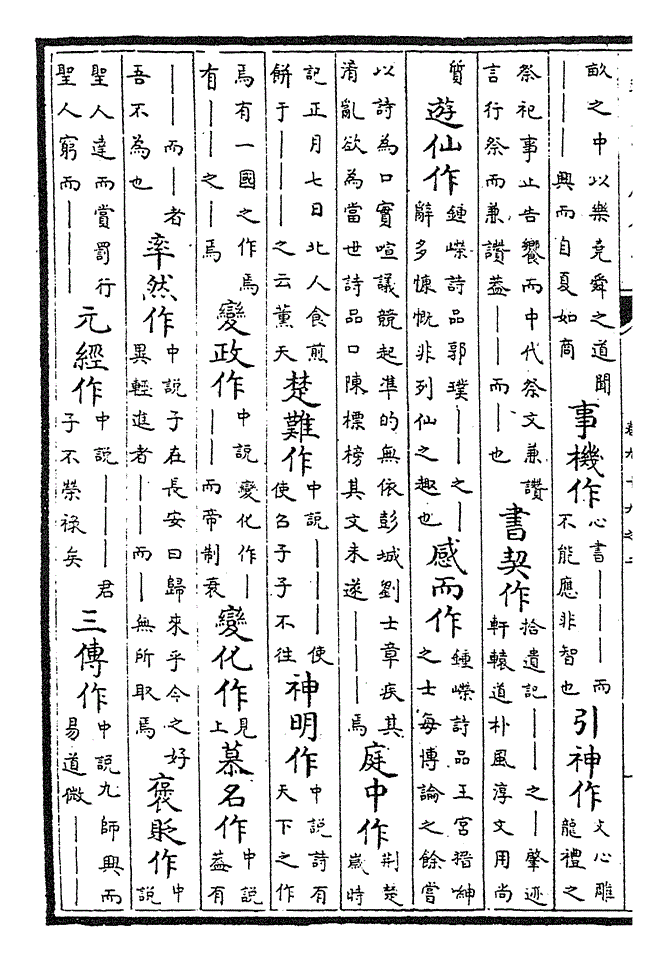 畝之中以樂堯舜之道聞———興而自夏如商 事機作 心書————而不能應非智也 引神作 文心雕龍禮之
祭祀事止告饗而中代祭文兼讚言行祭而兼讚蓋——而—也 書契作 拾遺記——之—肇迹軒轅道朴風淳文用尚
質 遊仙作 鍾嶸詩品郭璞——之—辭多慷慨非列仙之趣也 感而作 鍾嶸詩品王宮搢紳之士每博論之餘嘗
以詩為口實喧議競起準的無依彭城劉士章疾其淆亂欲為當世詩品口陳標榜其文未遂———焉 庭中作 荆楚歲時
記正月七日北人食煎餅于———之云薰天 楚難作 中説———使使召子子不往 神明作 中説詩有天下之作
焉有一國之作焉有——之—焉 變政作 中説變化作———而帝制衰 變化作 見上 慕名作 中説蓋有
——而—者吾不為也 率然作 中説子在長安曰歸來乎今之好異輕進者——而—無所取焉 褒貶作 中説
聖人達而賞罰行聖人窮而——— 元經作 中説———君子不榮禄矣 三傳作 中説九師興而易道微———